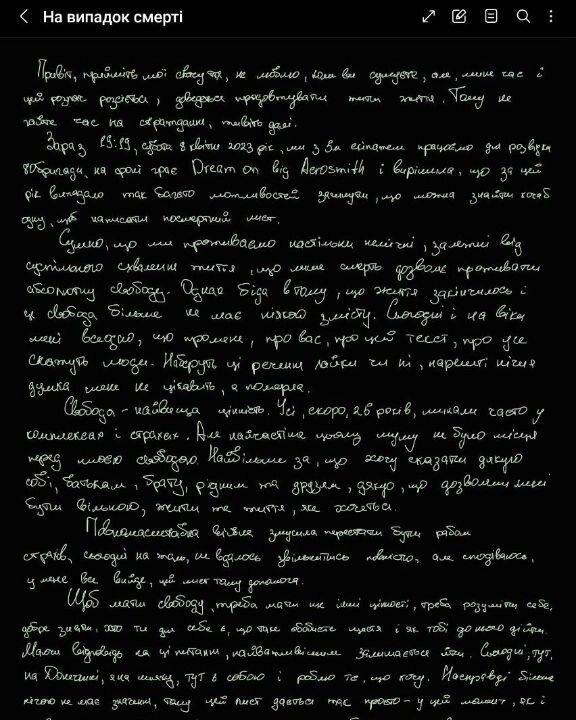 На випадок смерті
Привіт, прийміть мої співчуття, не люблю, коли ви сумуєте, але, мине час і
цей розпач розсіється, доведеться продовжувати жити життя. Тому не
гайте час на страждання, живіть далі.
Зараз 19:19, субота 8 квітня 2023 рік, ми з 3м екіпажем працюємо для розвідки
80бригади, на фоні грає Dream on від Aerosmith і вирішила, що за цей
рік випадало так багато можливостей загинути, що можна знайти хочаб
одну, щоб написати посмертний лист.
Сумно, що ми проживаємо настільки нелічні, залежні від
суспільного схвалення життя, що лише смерть дозволяє проживати
абсолютну свободу. Однак біда в тому, що життя закінчилось і
ця свобода більше не має ніякого змісту. Сьогодні і на віки
мені всеодно, що про мене, про вас, про цей текст, про усе
скажуть люди. Наберуть ці речення лайки чи ні, нарешті нічия
думка мене не цікавить, я померла.
Свобода - найвища цінність. Усі, скоро, 26 років, минали часто у
комплексах і страхах. Але найчастіше цьому мулу не було місця
перед моєю свободою. Найбільше за, що хочу сказати дякую
собі, батькам, брату, рідним та друзям, дякую, що дозволяли мені
бути вільною, жити те життя, яке хочеться.
Повномасштабна війна змусила перестати бути рабом
страхів, сьогодні на жаль, не вдалось звільнитись повністю, але сподіваюсь,
у мене все вийде, цей лист тому допомога.
Щоб мати свободу, треба мати ще інші цінності, треба розуміти себе,
добре знати, хто ти для себе є, що таке особисте щастя і як тобі до нього дійти.
Маючи відповідь на ці питання, найважливішим залишається йти. Сьогодні, тут,
на Донеччині, я на шляху, тут я собою і роблю те, що хочу. Насправді більше
нічого не має значення, тому цей лист дається так просто - у цей момент, як і